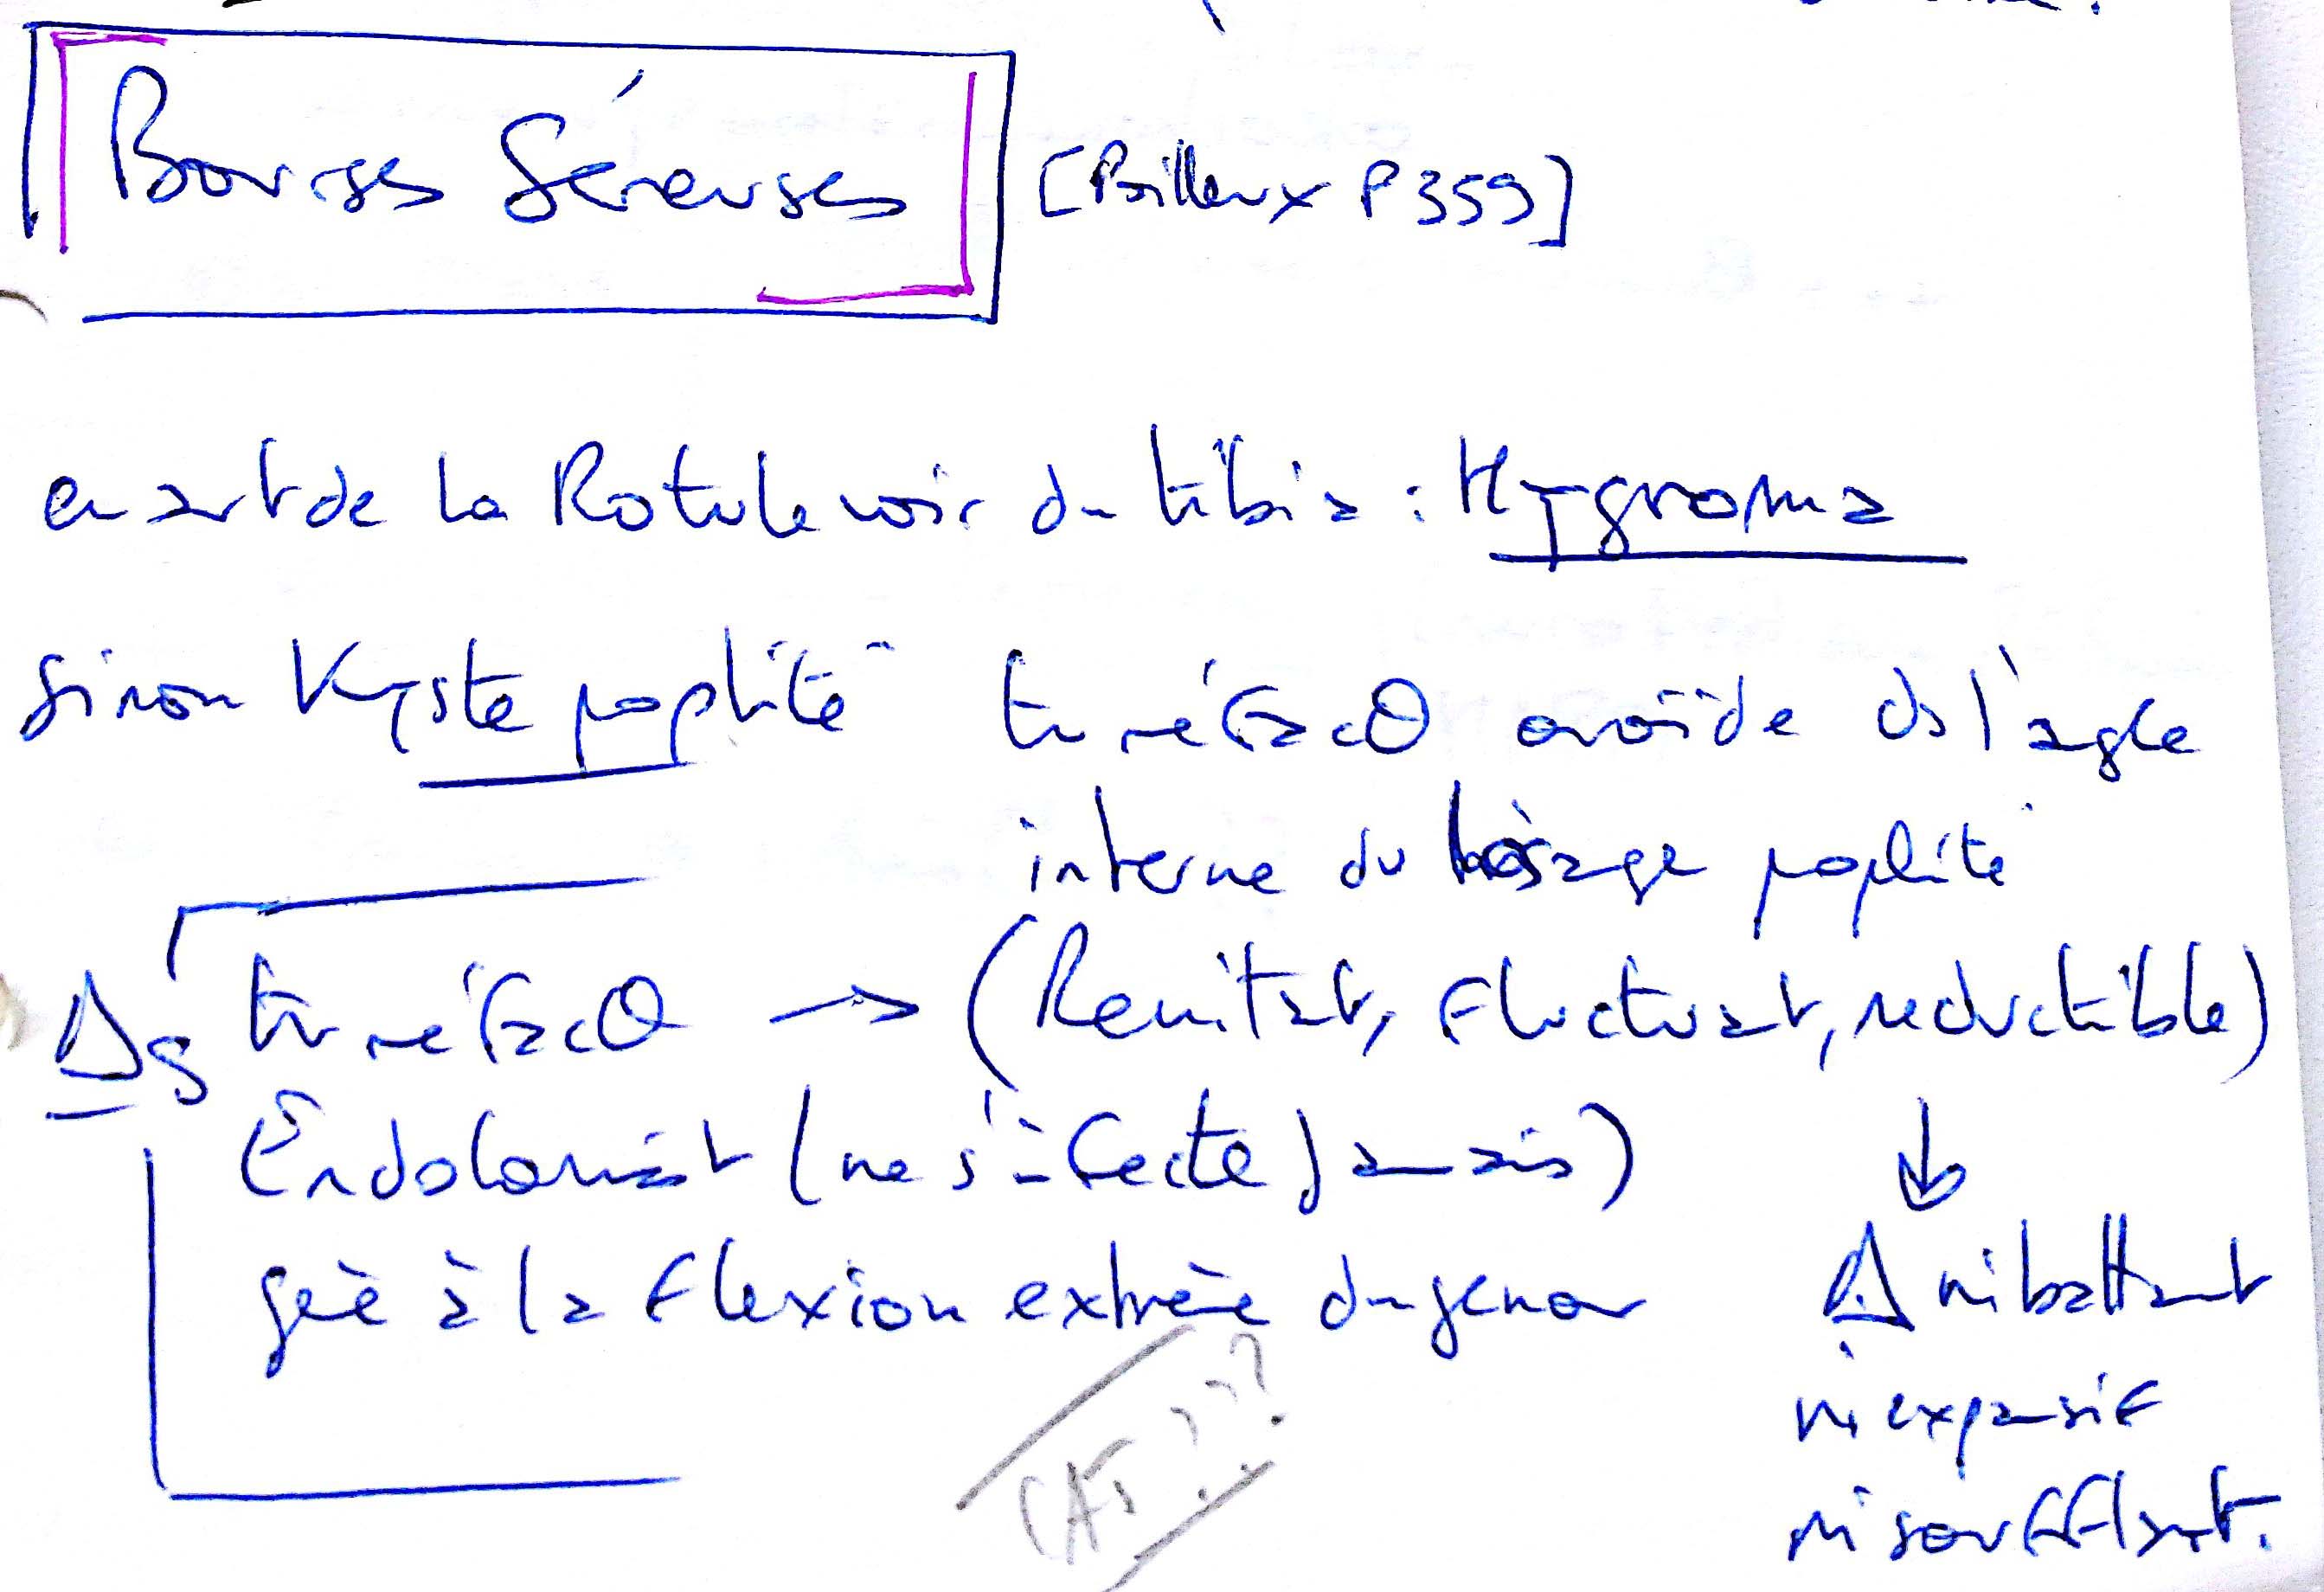 Bourses Séreuses [Poilleux P 359]
en avt de la Rotule voir du tibia : Hygroma
sinon Kyste poplité tuméfac⊖ ovoïde ds l'angle
interne du losange poplité
Δg tuméfac⊖ → (Renitant, fluctuant, reductible)
Endolorissant (ne s'infecte Jamais) ↓
gêne à la flexion extrême du genou Δ ni battant
ni expansif
CAT ??? ni soufflant.